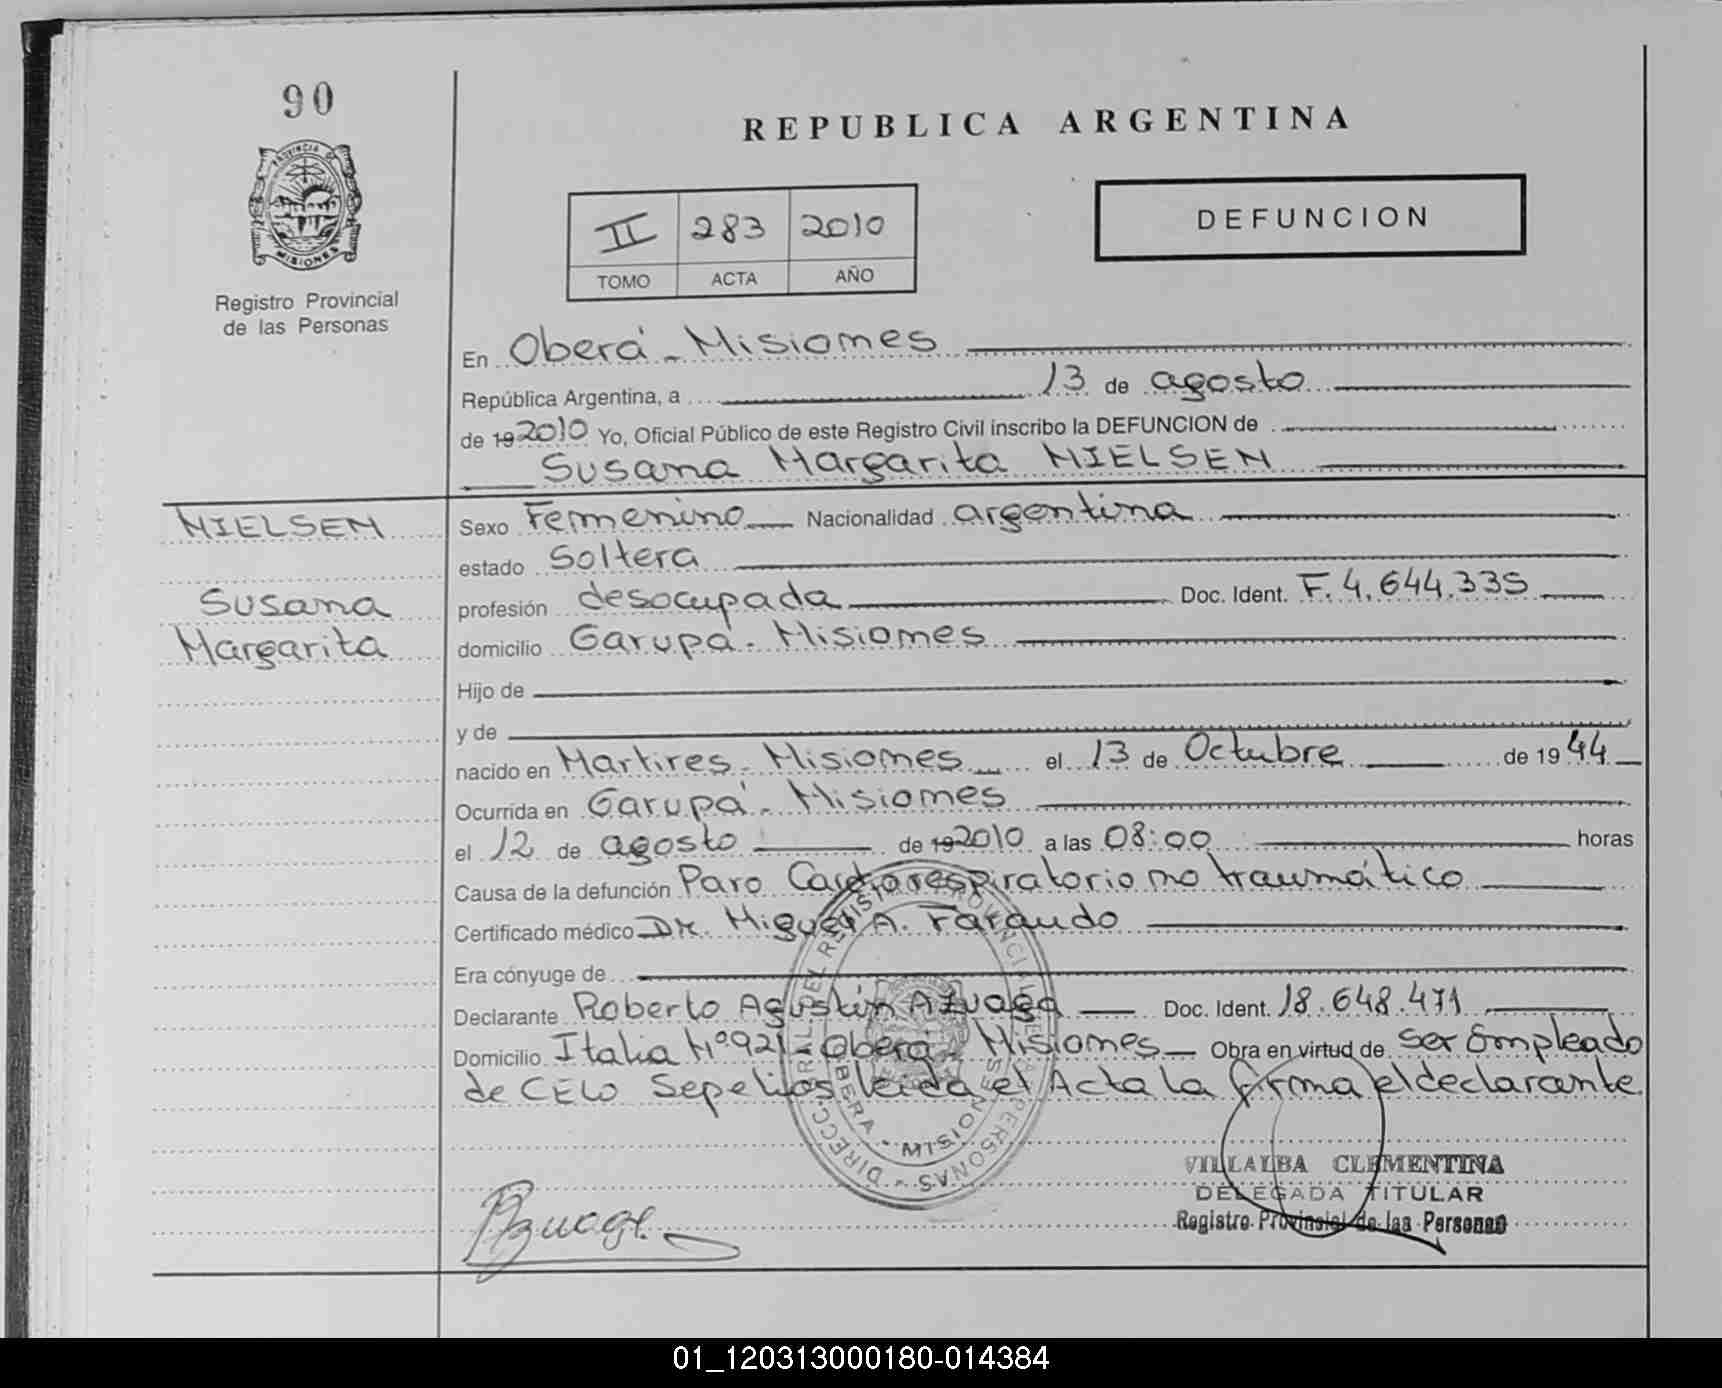 90
PROVINCIA DE
MISIONES
Registro Provincial
de las Personas
REPUBLICA ARGENTINA
II 283 2010
TOMO ACTA AÑO
DEFUNCION
En Oberá - Misiones
República Argentina, a 13 de agosto
de 19 2010 Yo, Oficial Público de este Registro Civil inscribo la DEFUNCION de
Susana Margarita NIELSEN
NIELSEN
Susana
Margarita
Sexo Femenino Nacionalidad argentina
estado Soltera
profesión desocupada Doc. Ident. F. 4.644.335
domicilio Garupá - Misiones
Hijo de
y de
nacido en Martires - Misiones el 13 de Octubre de 1944
Ocurrida en Garupá - Misiones
el 12 de agosto de 19 2010 a las 08:00 horas
Causa de la defunción Paro Cardiorespiratorio no traumático
Certificado médico Dr. Miguel A. Faraudo
Era cónyuge de
Declarante Roberto Agustín Azuaga Doc. Ident. 18.648.471
Domicilio Italia Nº 921 - Oberá - Misiones Obra en virtud de ser Empleado
de CELO Sepelios leida el Acta la firma el declarante
OBERA - MISIONES
Azuaga
VILLALBA CLEMENTINA
DELEGADA TITULAR
Registro Provincial de las Personas
01_120313000180-014384